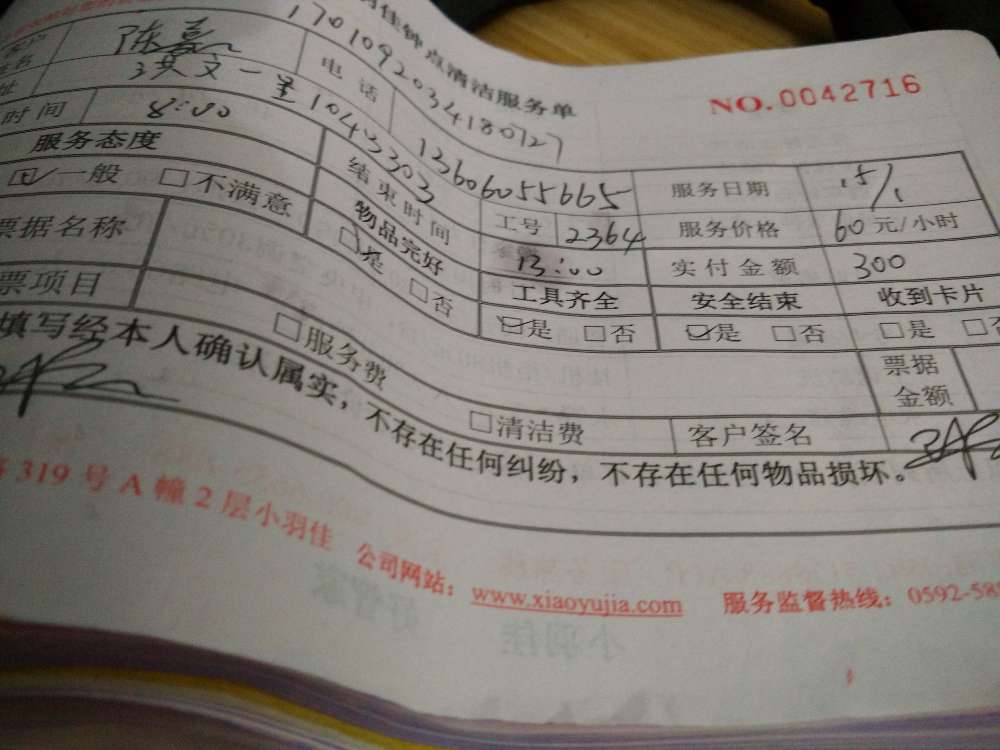 羽佳钟点清洁服务单
NO.0042716
1701092034180727
陈
电话
13606055665
服务日期
15/1
工号
2364
服务价格
60元/小时
时间
8:00
结束时间
13:00
实付金额
300
服务态度
物品完好
工具齐全
安全结束
收到卡片
一般 □不满意
□是 □否
是 □否
是 □否
□是
票据名称
票据金额
票项目
□服务费
□清洁费
客户签名
填写经本人确认属实，不存在任何纠纷，不存在任何物品损坏。
319号A幢2层小羽佳 公司网站：www.xiaoyujia.com 服务监督热线：0592-58